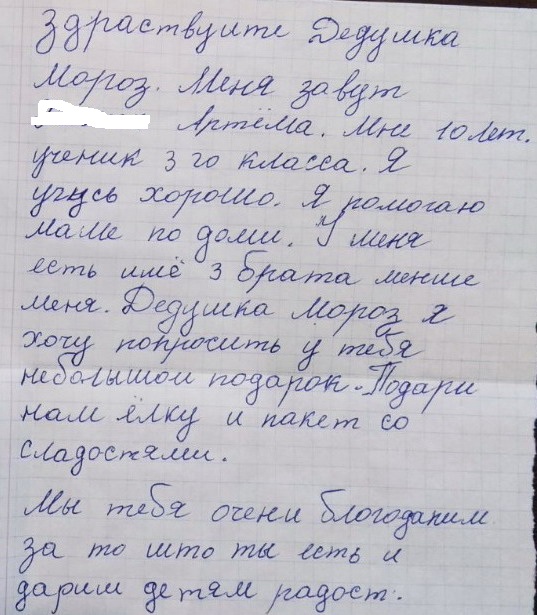 Здраствуите Дедушка
Мороз. Меня завут
Артёма. Мне 10 лет.
ученик 3 го класса. Я
учусь хорошо. Я помогаю
маме по доми. У меня
есть имё 3 брата менше
меня. Дедушка Мороз я
хочу попросить у тебя
неболышои подарок. Подари
нам ёлку и пакет со
сладостями.
Мы тебя очени благодарим
за то што ты есть и
дарим детям радост.